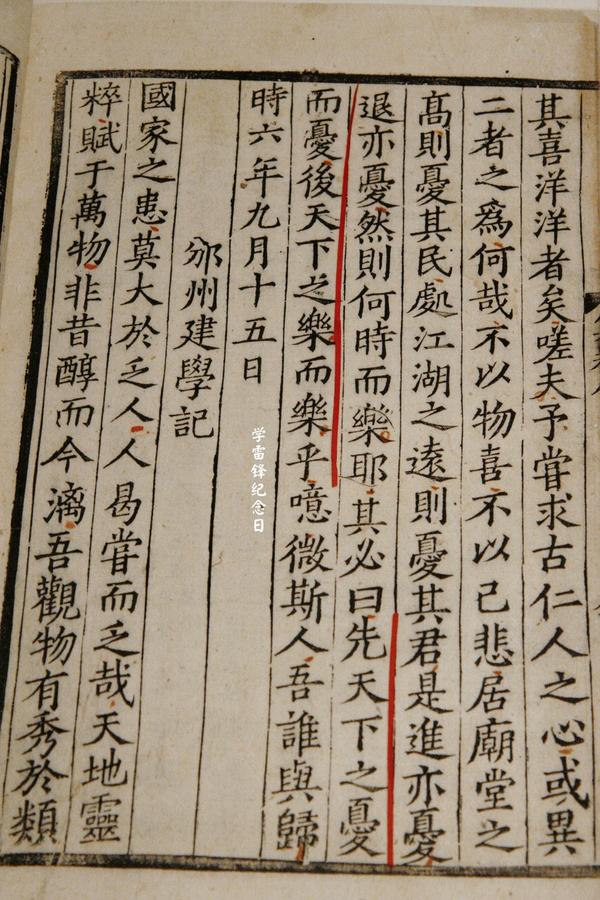 其喜洋洋者矣嗟夫予甞求古仁人之心或異
二者之爲何哉不以物喜不以己悲居廟堂之
髙則憂其民處江湖之遠則憂其君是進亦憂
退亦憂然則何時而樂耶其必曰先天下之憂
而憂後天下之樂而樂乎噫微斯人吾誰與歸
時六年九月十五日
邠州建學記
國家之患莫大於乏人人曷甞而乏哉天地靈
粹賦于萬物非昔醇而今漓吾觀物有秀於類
学雷锋纪念日